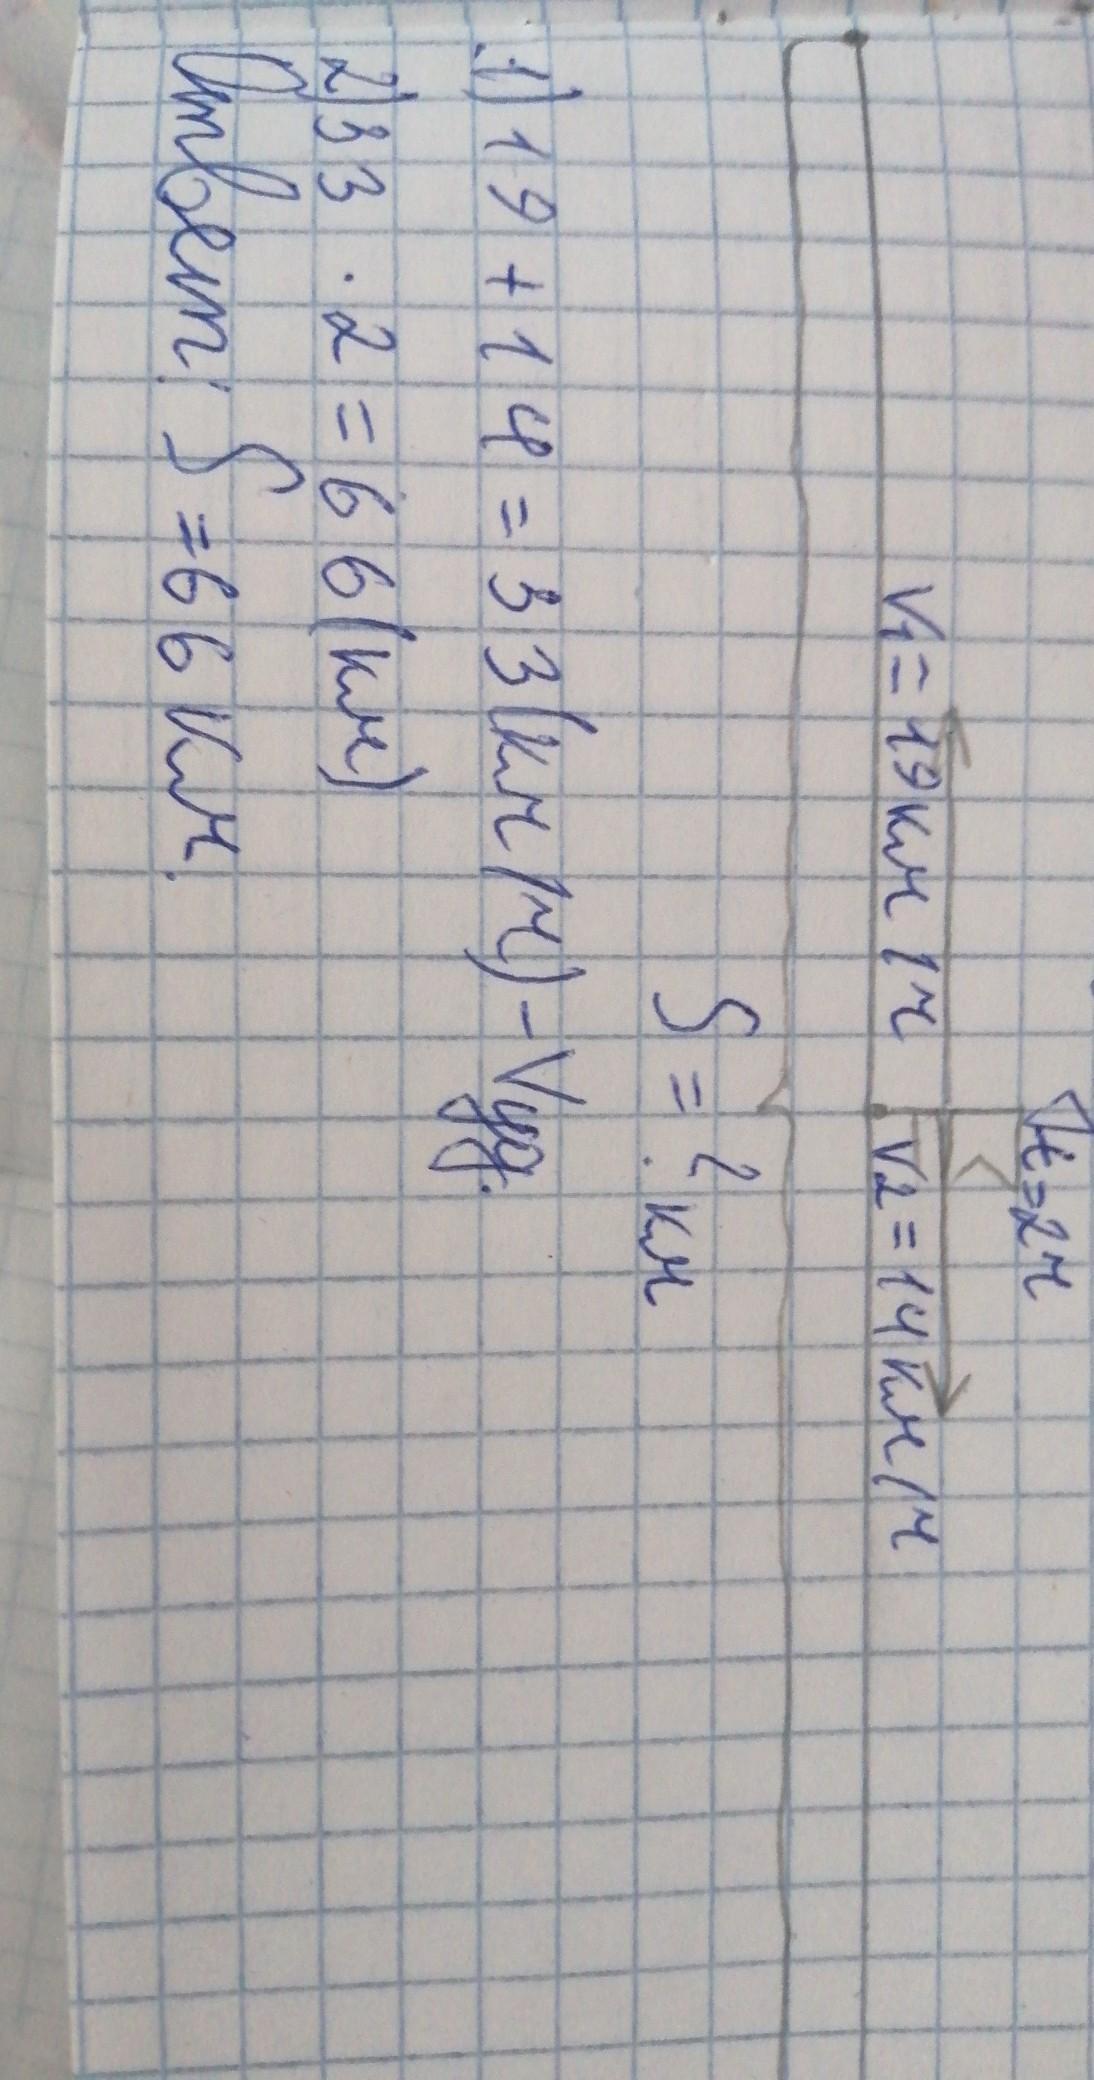 t=2ч
V1=19км/ч V2=14км/ч
S=? км
1) 19+14=33(км/ч)-Vуд.
2) 33·2=66(км)
Ответ: S=66 км.